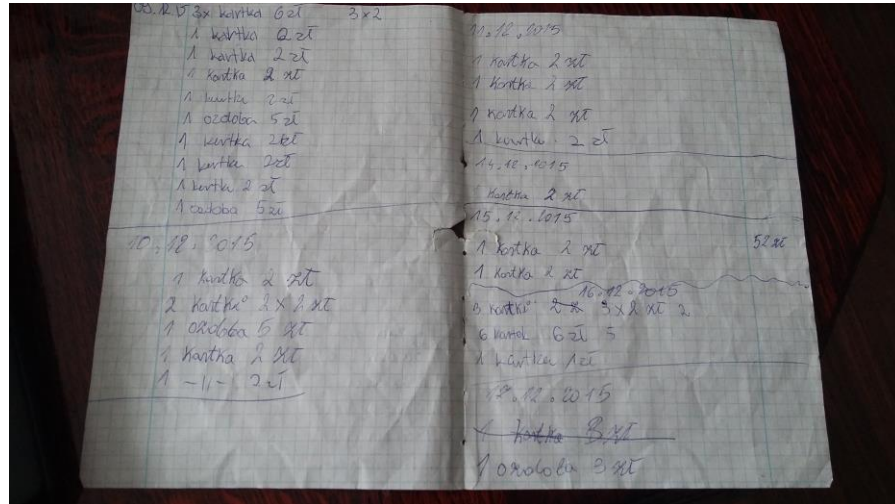 09.12.15 3x kartka 6 zł 3x2
1 kartka 2 zł
1 kartka 2 zł
1 kartka 2 zł
1 kartka 2 zł
1 ozdoba 5 zł
1 kartka 2 zł
1 kartka 2 zł
1 kartka 2 zł
1 ozdoba 5 zł
10.12.2015
1 kartka 2 zł
2 kartki 2 x 2 zł
1 ozdoba 5 zł
1 kartka 2 zł
1 -11- 2 zł
11.12.2015
1 kartka 2 zł
1 kartka 2 zł
1 kartka 2 zł
1 kartka 2 zł
14.12.2015
1 kartka 2 zł
15.12.2015
1 kartka 2 zł
52 zł
1 kartka 2 zł
16.12.2015
3 kartki 3x2 zł 2
6 kartek 6 zł 5
1 kartka 1 zł
17.12.2015
1 kartka 3 zł
1 ozdoba 3 zł